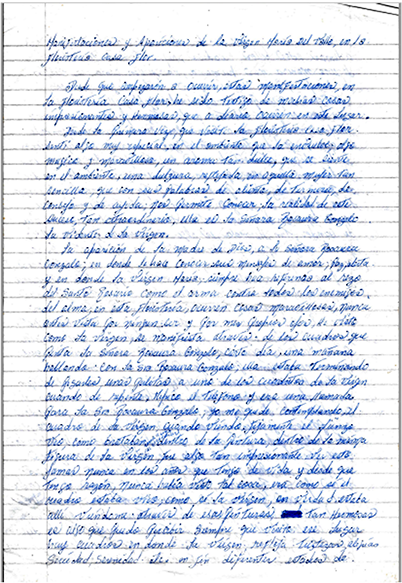 Manifestaciones y Apariciones de la Virgen María del Valle, en la
floristería Casa Flor.
Desde que empezaron a ocurrir, estas manifestaciones, en
la floristería Casa Flor, he sido testigo de muchas cosas
impresionantes y hermosas, que a diario ocurren en este lugar.
Desde la primera vez, que visité la floristería Casa Flor
sentí algo muy especial, en el ambiente que la envuelve, algo
mágico y maravilloso, un aroma tan dulce, que se siente
en el ambiente, una dulzura, reflejada en aquella mujer tan
sencilla, que con sus palabras de aliento, de ternura, de
consejo y de ayuda, nos permite conocer, la realidad de este
suceso, tan extraordinario, ella es la Señora Rosaura González
la vidente de la Virgen.
La aparición de la Madre de Dios, a la Señora Rosaura
González; en donde le hace conocer sus mensajes de amor,
y en donde la Virgen María, siempre nos el rezo
del Santo Rosario como el arma contra todos los enemigos
del alma, en esta floristería, ocurren cosas maravillosas, nunca
antes vista por ningún ser y por mis propios ojos, he visto
como la Virgen se manifiesta através de los cuadros que
pinta la Señora Rosaura González, cierto día, una mañana
hablando con la Sra Rosaura González, ella estaba terminando
de a uno de los cuadritos de la Virgen
cuando de repente, repicó el teléfono y era una llamada
para la Sra Rosaura González, yo me quedé contemplando, el
cuadro de la Virgen cuando viendo, fijamente el
veo, como dentro de la pintura, dentro de la misma
figura de la Virgen que algo tan impresionante
jamás nunca en los años que tengo de vida y desde que
tengo razón, nunca había visto tal cosa, era como si el
cuadro estaba vivo, como es la Virgen, en verdad estaba
allí viéndome através de esas pinturas, tan hermosas
es algo que pude siempre que visito ese lugar
hay cuadros en donde la Virgen, refleja
seriedad, serenidad en fin diferentes estados de